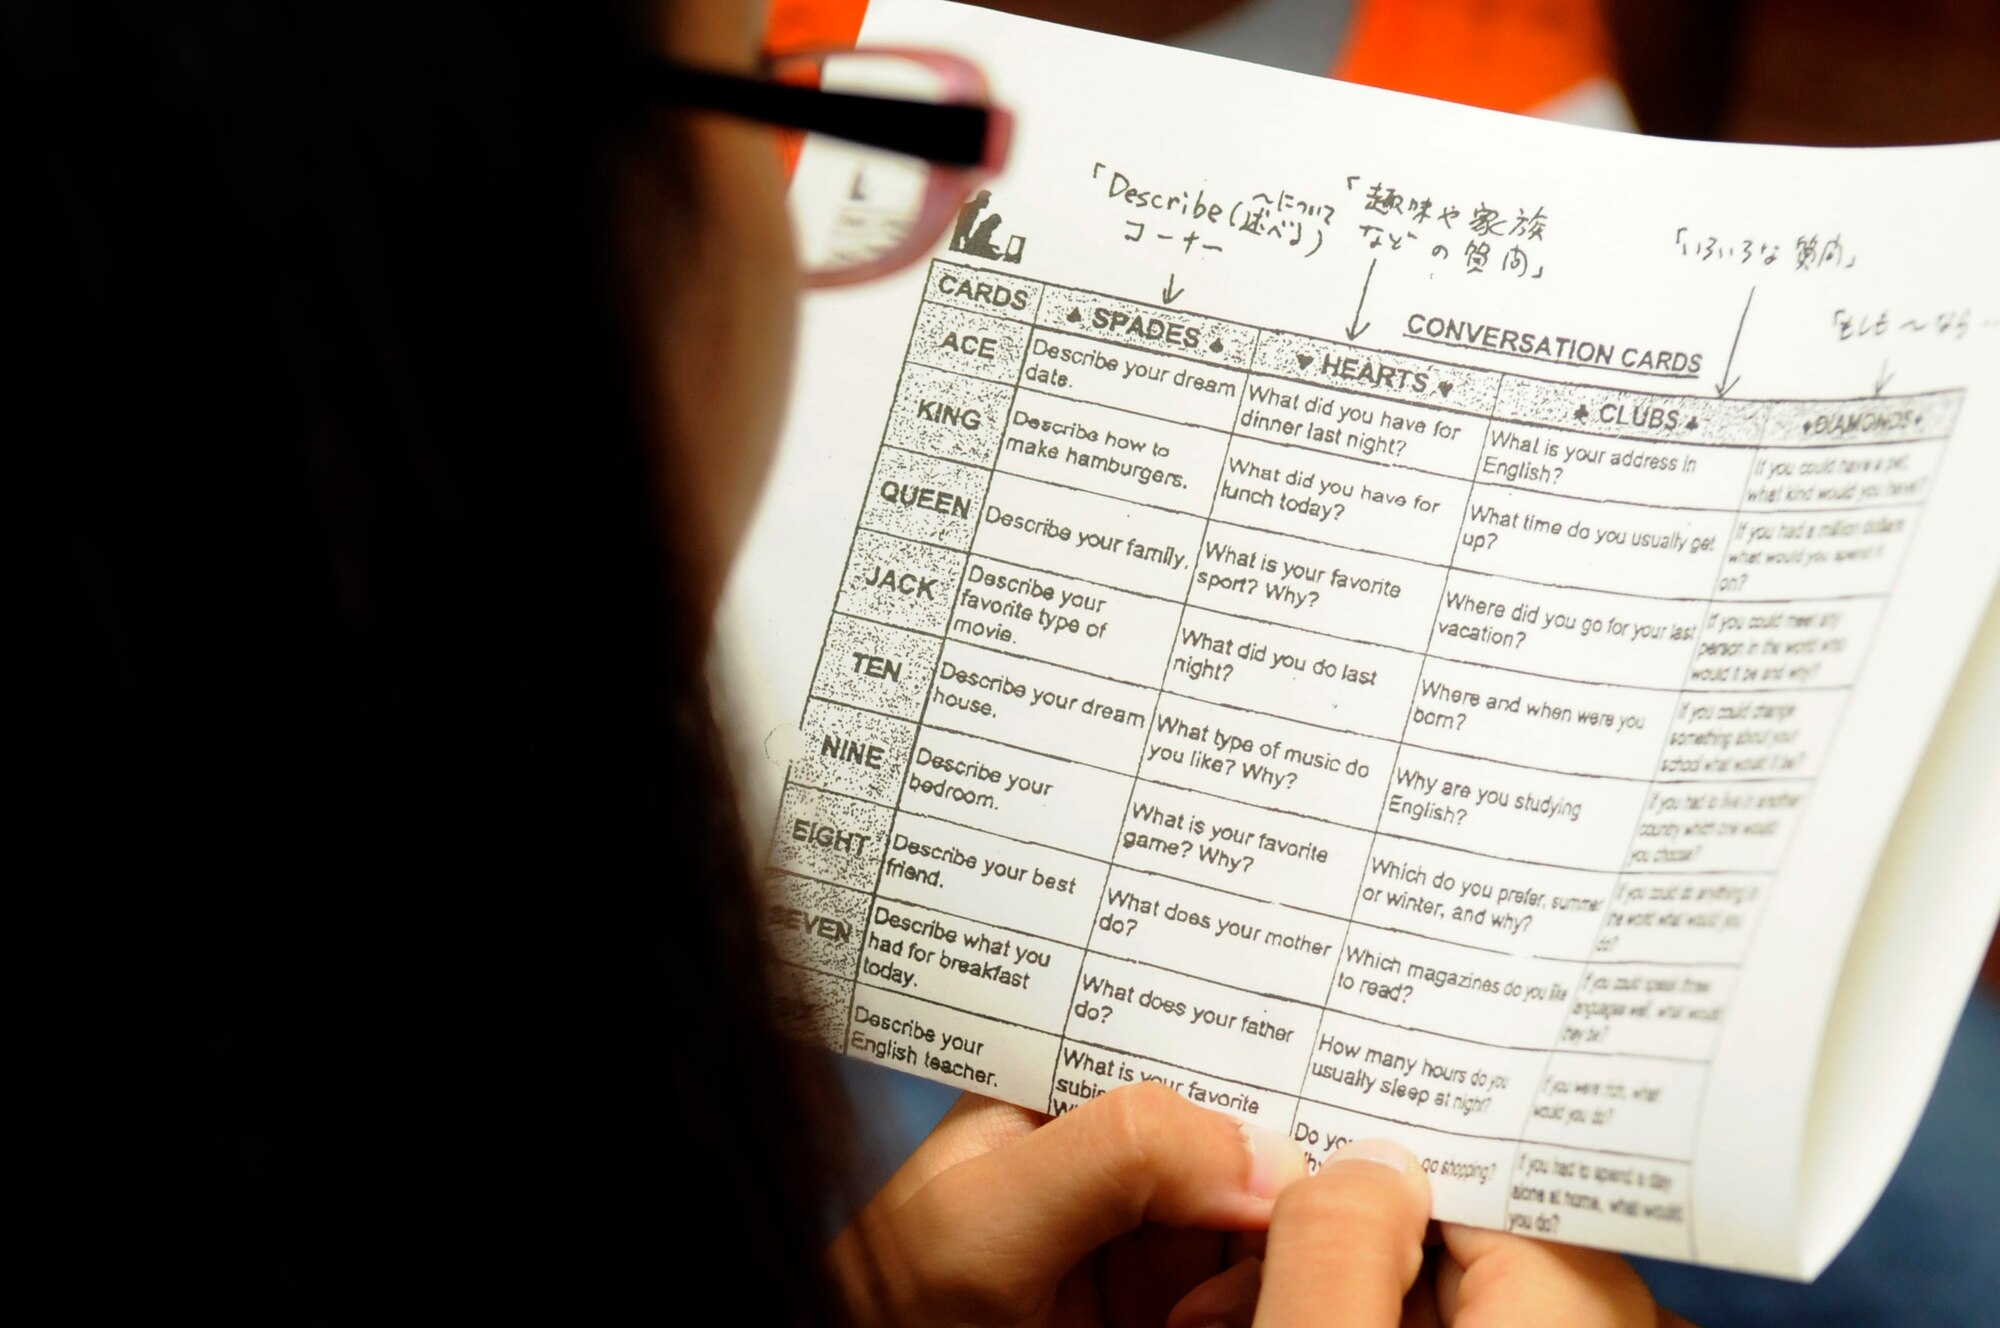 「Describe(〜について
(述べる)
コーナー
「趣味や家族
などの質問」
「いろいろな質問」
「もしも〜なら…
CONVERSATION CARDS
CARDS
♠ SPADES ♠
♥ HEARTS ♥
♣ CLUBS ♣
♦DIAMONDS♦
ACE
Describe your dream
date.
What did you have for
dinner last night?
What is your address in
English?
If you could have a pet,
what kind would you have?
KING
Describe how to
make hamburgers.
What did you have for
lunch today?
What time do you usually get
up?
If you had a million dollars
what would you spend it
on?
QUEEN
Describe your family.
What is your favorite
sport? Why?
Where did you go for your last
vacation?
If you could meet any
person in the world who
would it be and why?
JACK
Describe your
favorite type of
movie.
What did you do last
night?
Where and when were you
born?
If you could change
something about your
school what would it be?
TEN
Describe your dream
house.
What type of music do
you like? Why?
Why are you studying
English?
If you had to live in another
country which one would
you choose?
NINE
Describe your
bedroom.
What is your favorite
game? Why?
Which do you prefer, summer
or winter, and why?
If you could do anything in
the world what would you
do?
EIGHT
Describe your best
friend.
What does your mother
do?
Which magazines do you like
to read?
If you could speak three
languages well, what would
they be?
SEVEN
Describe what you
had for breakfast
today.
What does your father
do?
How many hours do you
usually sleep at night?
If you were rich, what
would you do?
Describe your
English teacher.
What is your favorite
Do you go shopping?
If you had to spend a day
alone at home, what would
you do?